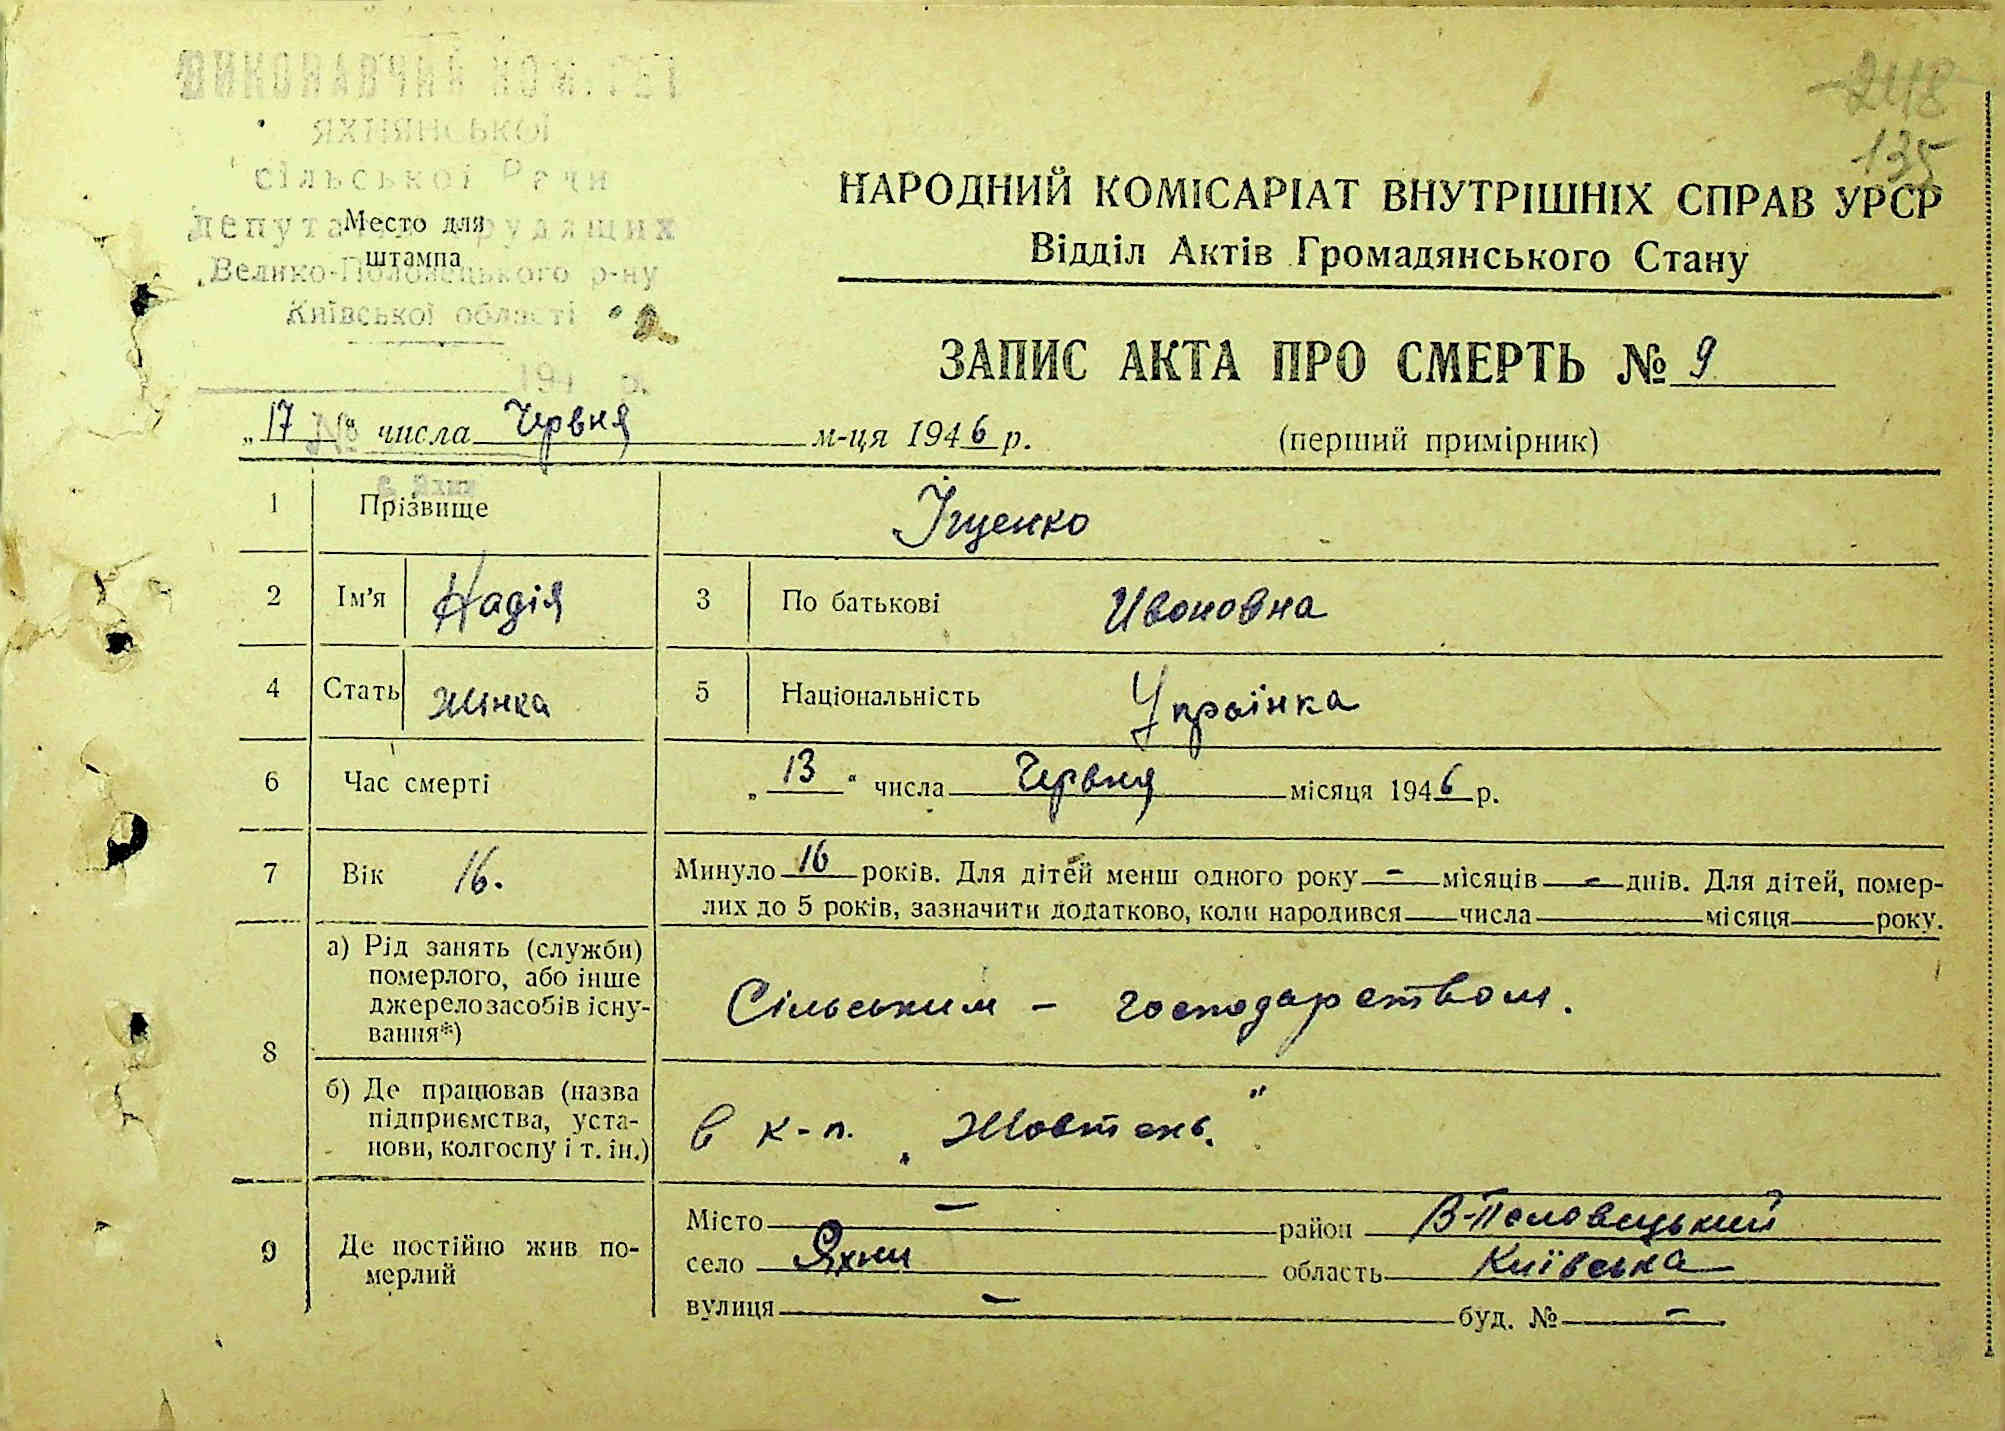 ВИКОНАВЧИЙ КОМІТЕТ
ЯХНЯНСЬКОЇ
сільської Ради
депутатів трудящих
Велико-Половецького р-ну
Київської області
194 р.
№
Место для
штампа
248
135
НАРОДНИЙ КОМІСАРІАТ ВНУТРІШНІХ СПРАВ УРСР
Відділ Актів Громадянського Стану
ЗАПИС АКТА ПРО СМЕРТЬ № 9
„17“ числа Червня м-ця 1946 р. (перший примірник)
1 Прізвище Іщенко
2 Ім'я Надія 3 По батькові Ивоновна
4 Стать жінка 5 Національність Українка
6 Час смерті „13“ числа Червня місяця 1946 р.
7 Вік 16. Минуло 16 років. Для дітей менш одного року - місяців - днів. Для дітей, помер-
лих до 5 років, зазначити додатково, коли народився числа місяця року.
8 а) Рід занять (служби)
померлого, або інше
джерело засобів існу-
вання*)
Сільським - господарством.
б) Де працював (назва
підприємства, уста-
нови, колгоспу і т. ін.)
в к-п. „Жовтень."
9 Де постійно жив по-
мерлий
Місто - район В-Половецький
село Яхни область Київська
вулиця - буд. № -